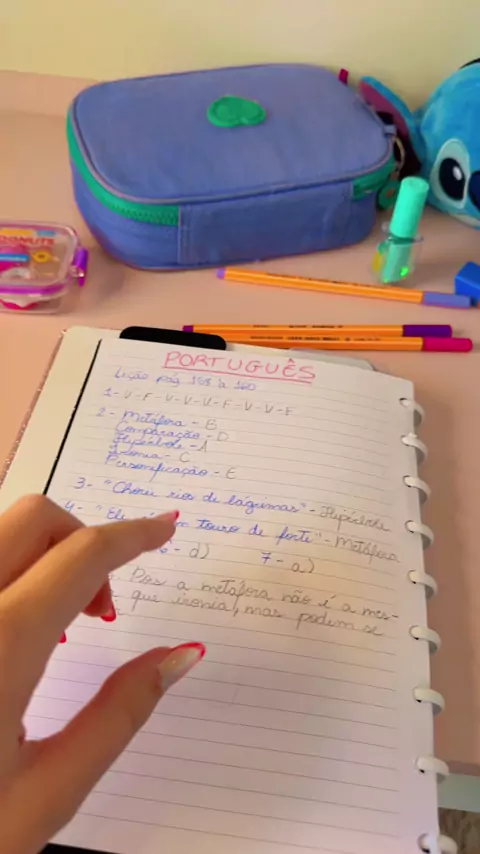 DONUTS
PORTUGUÊS
Lição pág 158 à 160
1- V - F - V - V - V - F - V - V - F
2 - Metáfora - B
Comparação - D
Hipérbole - A
Ironia - C
Personificação - E
3- "Chorei rios de lágrimas" - Hipérbole
4- "Ele touro de forte" - Metáfora
6 - d) 7 - a)
Pos a metáfora não é a mes-
que ironia, mas podem se